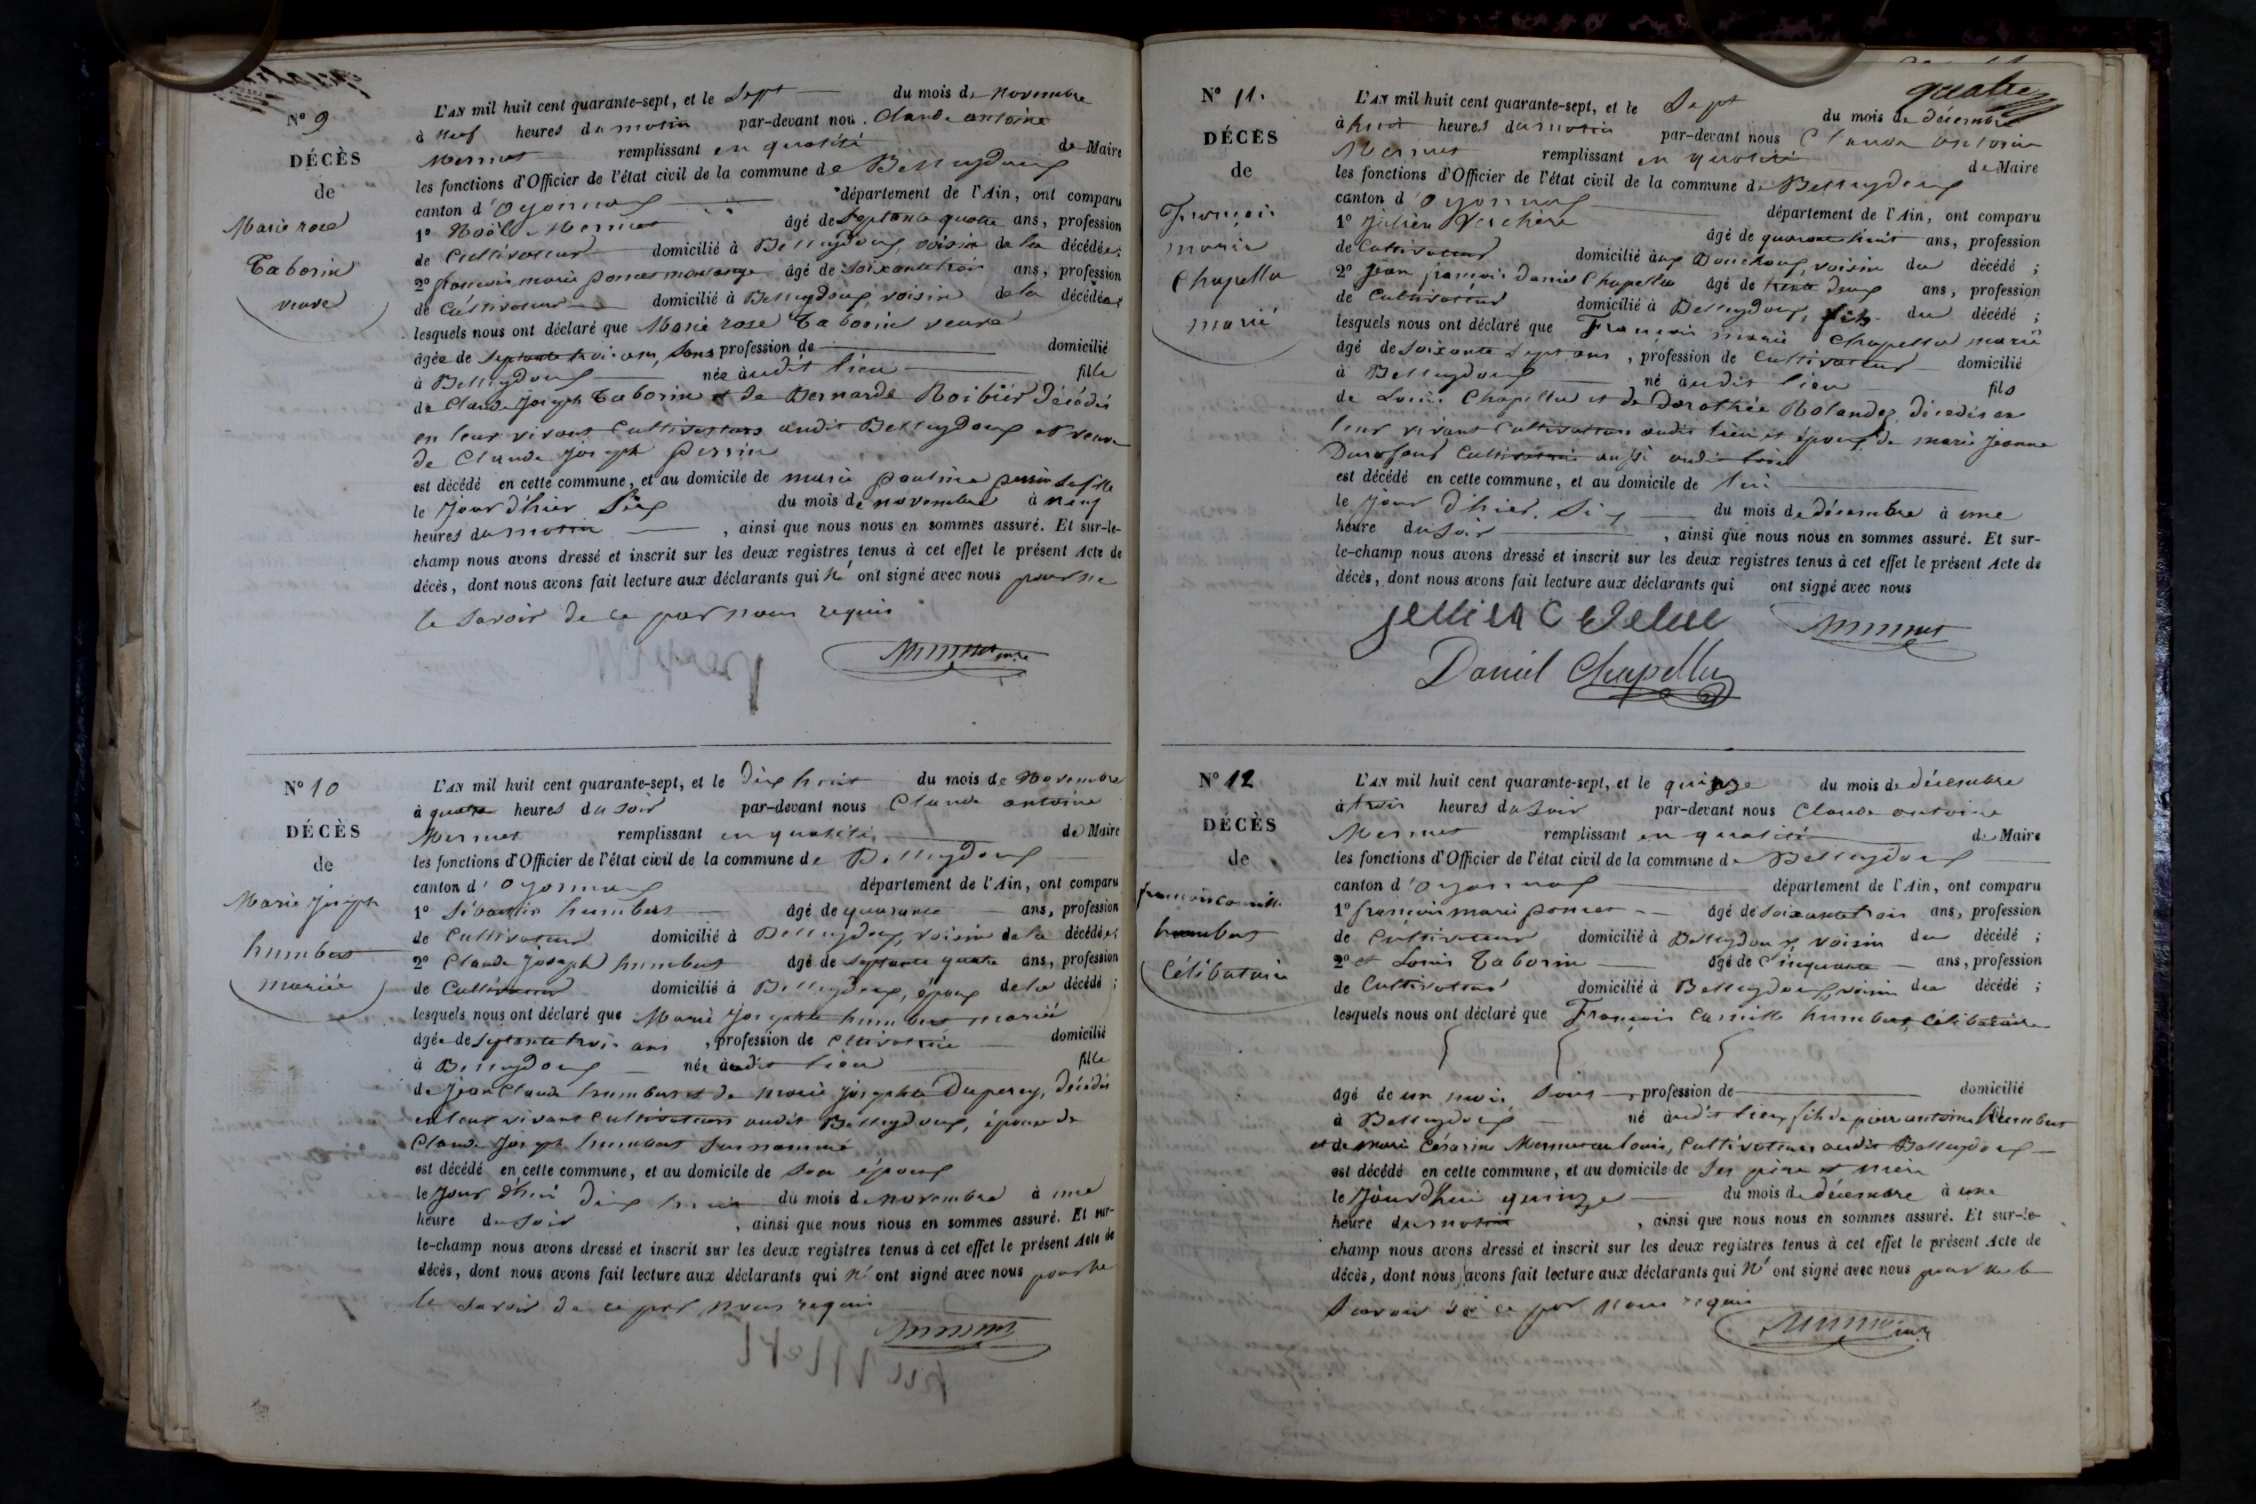 N° 9
DÉCÈS
de
Marie rose
Taborin
veuve
L'AN mil huit cent quarante-sept, et le Sept du mois de novembre
à neuf heures du matin par-devant nou. Claude antoine
Mermet remplissant en qualité de Maire
les fonctions d'Officier de l'état civil de la commune de Belleydoux
canton d'Oyonnax département de l'Ain, ont comparu
1° Noël Mermet âgé de Septante quatre ans, profession
de Cultivateur domicilié à Belleydoux voisin de la décédée;
2° françois marie poncet âgé de Soixante trois ans, profession
de Cultivateur domicilié à Belleydoux voisin de la décédée
lesquels nous ont déclaré que Marie rose Taborin veuve
âgée de septante trois ans, Sans profession de domicilié
à Belleydoux née audit lieu fille
de Claude Joseph Taborin et de Bernarde Roibier décédés
en leur vivant Cultivateurs audit Belleydoux et veuve
de Claude Joseph perrin
est décédé en cette commune, et au domicile de marie pauline perrin sa fille
le Jour d'hier Six du mois de novembre à neuf
heures du matin , ainsi que nous nous en sommes assuré. Et sur-le-
champ nous avons dressé et inscrit sur les deux registres tenus à cet effet le présent Acte de
décès, dont nous avons fait lecture aux déclarants qui n' ont signé avec nous pour ne
le Savoir de ce par nous requis
Mermet
N° 10
DÉCÈS
de
Marie Joseph
humbert
mariée
L'AN mil huit cent quarante-sept, et le Dix huit du mois de Novembre
à quatre heures du soir par-devant nous Claude antoine
Mermet remplissant en qualité de Maire
les fonctions d'Officier de l'état civil de la commune de Belleydoux
canton d'Oyonnax département de l'Ain, ont comparu
1° Sébastien humbert âgé de quarante ans, profession
de Cultivateur domicilié à Belleydoux, voisin de la décédée;
2° Claude Joseph humbert âgé de Septante quatre ans, profession
de Cultivateur domicilié à Belleydoux, époux de la décédé ;
lesquels nous ont déclaré que Marie Josephte humbert mariée
âgée de Septante trois ans , profession de domicilié
à Belleydoux née audit lieu fille
de Jean Claude humbert et de marie Josephte Duperey, décédés
en leur vivant Cultivateurs audit Belleydoux, épouse de
Claude Joseph humbert surnommé
est décédé en cette commune, et au domicile de Son époux
le Jour d'hui dix huit du mois de novembre à une
heure du Soir , ainsi que nous nous en sommes assuré. Et sur-
le-champ nous avons dressé et inscrit sur les deux registres tenus à cet effet le présent Acte de
décès, dont nous avons fait lecture aux déclarants qui n' ont signé avec nous pour ne
le Savoir de ce par nous requis
Mermet
quatre
N° 11.
DÉCÈS
de
François
marie
Chapellu
marié
L'AN mil huit cent quarante-sept, et le Sept du mois de décembre
à huit heures du matin par-devant nous Claude antoine
Mermet remplissant en qualité de Maire
les fonctions d'Officier de l'état civil de la commune de Belleydoux
canton d'Oyonnax département de l'Ain, ont comparu
1° Julien âgé de quarante huit ans, profession
de Cultivateur domicilié aux Bouchoux, voisin du décédé ;
2° Jean françois Daniel Chapellu âgé de trente deux ans, profession
de Cultivateur domicilié à Belleydoux, fils du décédé ;
lesquels nous ont déclaré que François marie Chapellu marié
âgé de Soixante Sept ans , profession de Cultivateur domicilié
à Belleydoux né audit lieu fils
de Louis Chapellu et de Dorothée Rolandez décédés en
leur vivant Cultivateurs audit lieu et époux de marie Jeanne
Durafour Cultivatrice aussi audit lieu
est décédé en cette commune, et au domicile de lui
le Jour d'hier, Six du mois de décembre à une
heure du Soir , ainsi que nous nous en sommes assuré. Et sur-
le-champ nous avons dressé et inscrit sur les deux registres tenus à cet effet le présent Acte de
décès, dont nous avons fait lecture aux déclarants qui ont signé avec nous
Mermet
Daniel Chapellu
N° 12
DÉCÈS
de
françois camille
humbert
Célibataire
L'AN mil huit cent quarante-sept, et le quinze du mois de décembre
à trois heures du Soir par-devant nous Claude antoine
Mermet remplissant en qualité de Maire
les fonctions d'Officier de l'état civil de la commune de Belleydoux
canton d'Oyonnax département de l'Ain, ont comparu
1° françois marie poncet âgé de Soixante trois ans, profession
de Cultivateur domicilié à Belleydoux voisin du décédé ;
2° et Louis Taborin âgé de Cinquante ans, profession
de Cultivateur domicilié à Belleydoux, voisin du décédé ;
lesquels nous ont déclaré que François Camille humbert, Célibataire
âgé de un mois Sans profession de domicilié
à Belleydoux né audit lieu, fils de pierre antoine humbert
et de marie Césarine Mermet au louis, Cultivateurs audit Belleydoux
est décédé en cette commune, et au domicile de Ses père et mère
le Jourd'hui quinze du mois de décembre à une
heure du matin , ainsi que nous nous en sommes assuré. Et sur-le-
champ nous avons dressé et inscrit sur les deux registres tenus à cet effet le présent Acte de
décès, dont nous avons fait lecture aux déclarants qui n' ont signé avec nous pour ne le
Savoir de ce par nous requis
Mermet